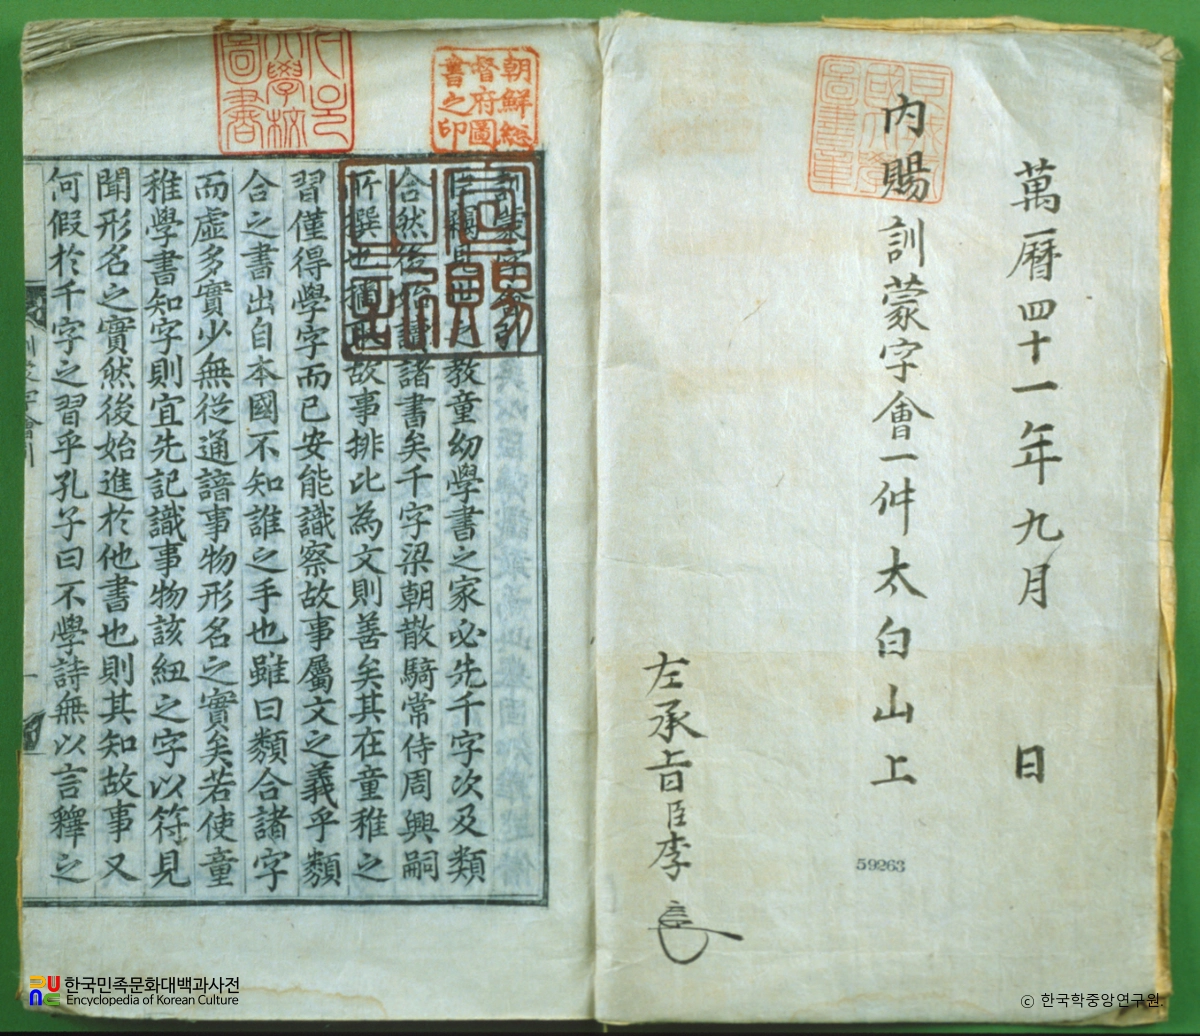 萬曆四十一年九月 日
內賜訓蒙字會一件太白山上
左承旨臣李
59263
朝鮮總
督府圖
書之印
宣賜之記
訓蒙字會引
臣竊見世之教童幼學書之家必先千字次及類
合然後始讀諸書矣千字梁朝散騎常侍周興嗣
所撰也摘取故事排比為文則善矣其在童稚之
習僅得學字而已安能識察故事屬文之義乎類
合之書出自本國不知誰之手也雖曰類合諸字
而虛多實少無從通諳事物形名之實矣若使童
稚學書知字則宜先記識事物該紐之字以符見
聞形名之實然後始進於他書也則其知故事又
何假於千字之習乎孔子曰不學詩無以言釋之
한국민족문화대백과사전
Encyclopedia of Korean Culture
© 한국학중앙연구원.